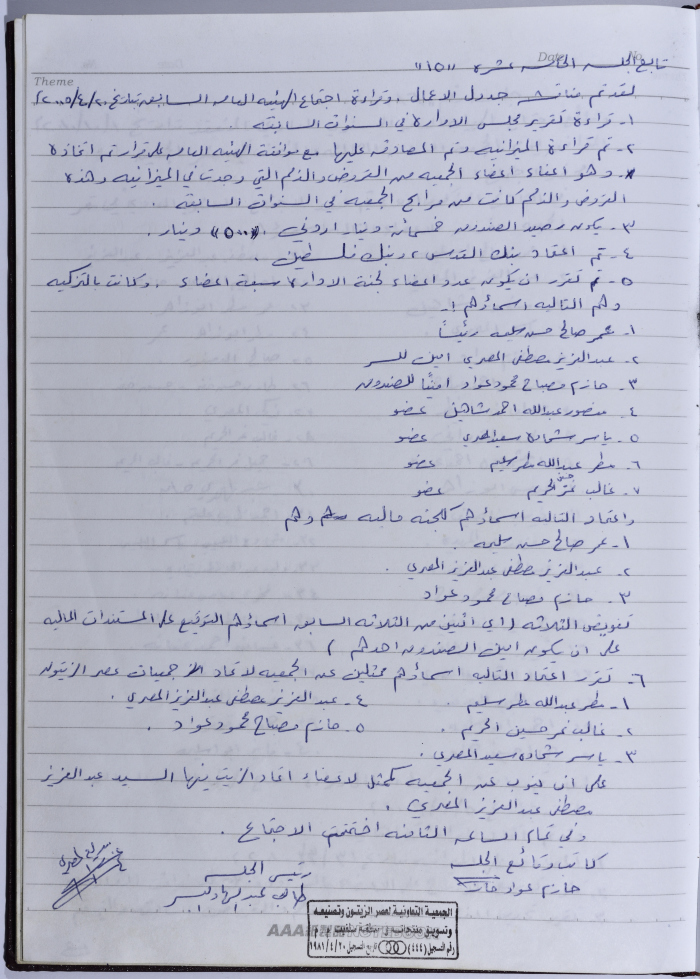 Date No.
تابع الجلسه الخامسه عشره "١٥"
Theme
لقد تم مناقشة جدول الاعمال ، وقراءة اجتماع الهيئه العامه السابعه بتاريخ ٢٠٠٥/٤/٢٠
١- قراءة تقرير مجلس الادارة في السنوات السابقه .
٢- تم قراءة الميزانيه وتم المصادقه عليها مع موافقة الهيئه العامه على قرار تم اتخاذه
وهو اعفاء اعضاء الجمعيه من القروض والذمم التي وجدت في الميزانيه وهذه
القروض والذمم كانت من مرابح الجمعيه في السنوات السابقه .
٣- يكون رصيد الصندوق خمسمائة دينار اردني "٥٠٠" دينار .
٤- تم اعتماد بنك القدس ، وبنك فلسطين .
٥- تم تقرر ان يكون عدد اعضاء لجنة الادارة سبعة اعضاء . وكانت بالتزكيه
وهم التاليه اسماؤهم :-
١- عمر صالح حسن سليمه رئيساً
٢- عبد العزيز مصطفى المصري امين للسر
٣- حازم مصباح محمود عواد اميناً للصندوق
٤- منصور عبدالله احمد شاهين عضو
٥- ياسر شحاده سعيد المصري عضو
٦- مطر عبدالله مطر سليم عضو
٧- غالب نمر حسين الحريم عضو
واعتماد التاليه اسماؤهم كلجنه ماليه وهم
١- عمر صالح حسن سليمه .
٢- عبدالعزيز مصطفى عبد العزيز المصري .
٣- حازم مصباح محمود عواد
تفويض الثلاثه (اي اثنين من الثلاثه السابقه اسماؤهم التوقيع على المستندات الماليه
على ان يكون امين الصندوق احدهم )
٦- تقرر اعتماد التاليه اسماؤهم ممثلين عن الجمعيه لاتحاد جمعيات عصر الزيتون
١- مطر عبدالله مطر سليم . ٤- عبد العزيز مصطفى عبد العزيز المصري .
٢- غالب نمر حسين الحريم . ٥- حازم مصباح محمود عواد .
٣- ياسر شحاده سعيد المصري .
على ان ينوب عن الجمعيه كممثل لاعضاء اتحاد الزيت فيها السيد عبد العزيز
مصطفى عبد العزيز المصري .
وفي تمام الساعه الثامنه اختتم الاجتماع .
كاتب وقائع الجلسه رئيس الجلسه
حازم عواد
الجمعية التعاونية لعصر الزيتون وتصنيعه
وتسويق منتجاته في منطقة سلفيت
رقم التسجيل (٤٤٤) تاريخ التسجيل ١٩٨١/٤/٢٠